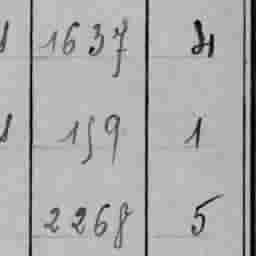 1637 4
159 1
2268 5